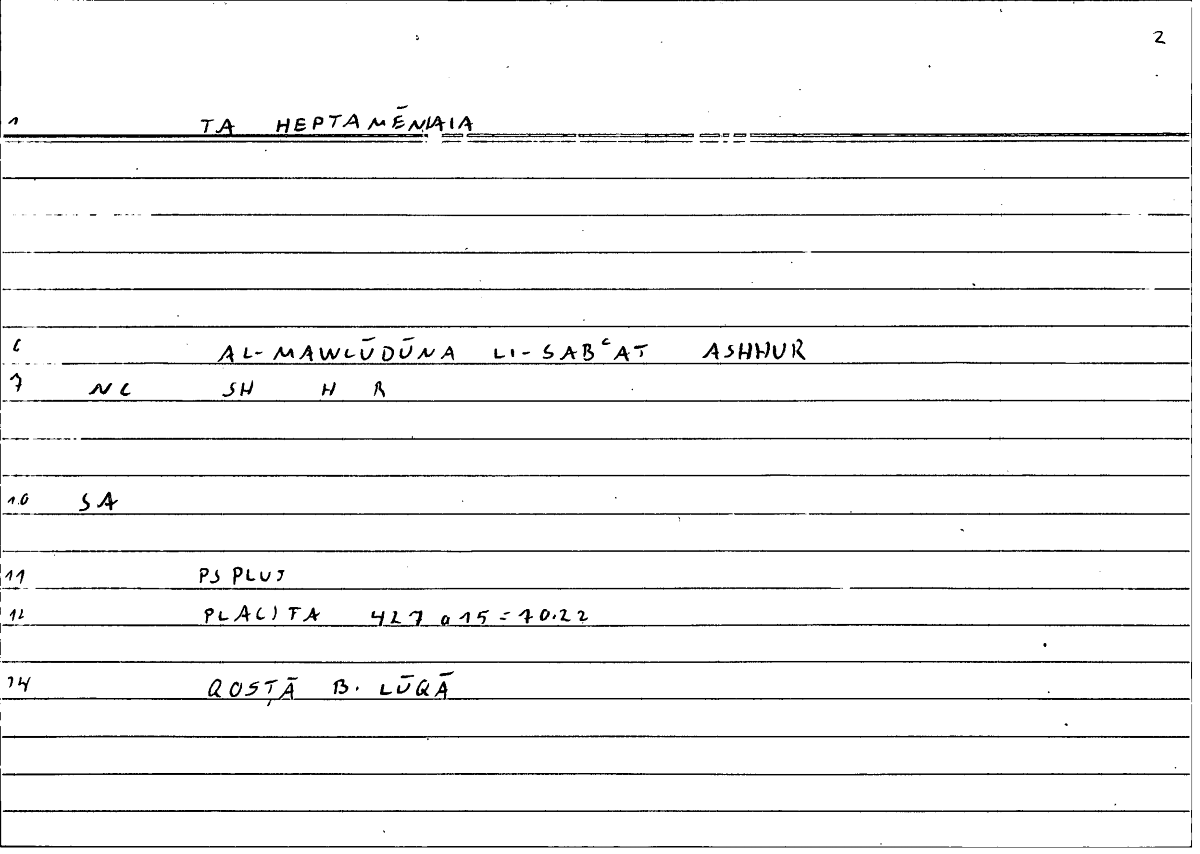 2
1 TA HEPTAMĒNIAIA
6 AL-MAWLŪDŪNA LI-SABʿAT ASHHUR
7 NC SH H R
10 SA
11 PS PLUT
12 PLACITA 427 a 15 = 70.22
14 QOSṬĀ B. LŪQĀ